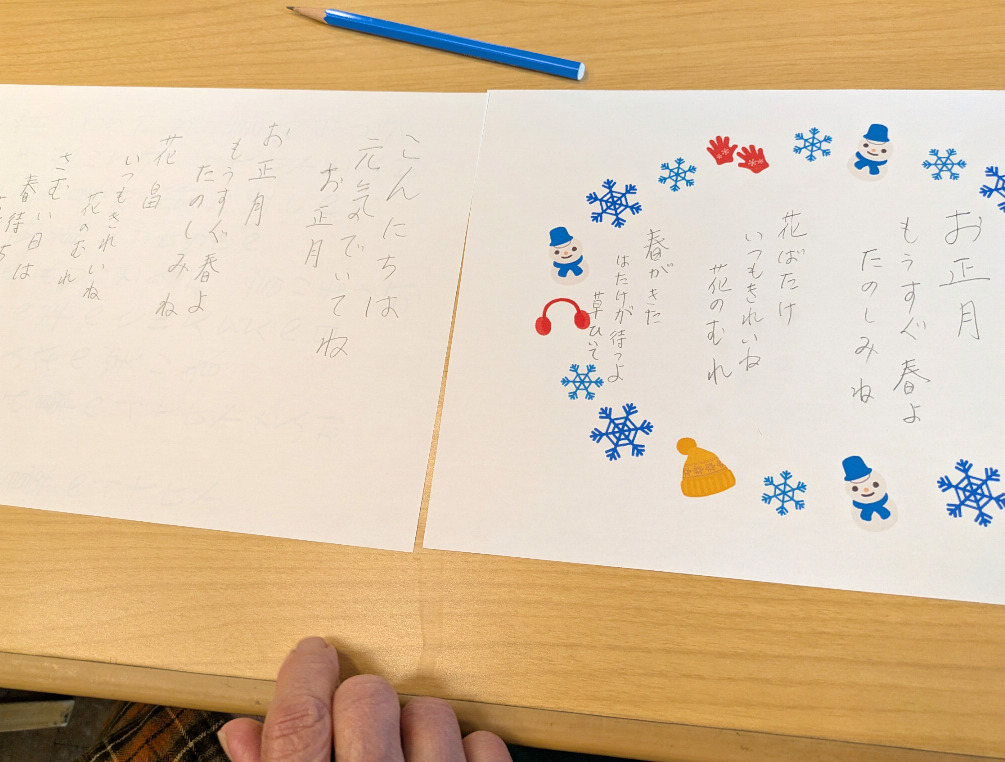 お正月
もうすぐ春よ
たのしみね
花ばたけ
いつもきれいね
花のむれ
春がきた
はたけが待つよ
草ひいて
こんにちは
元気でいてね
お正月
お正月
もうすぐ春よ
たのしみね
花畠
いつもきれいね
花のむれ
さむい日は
春待ち